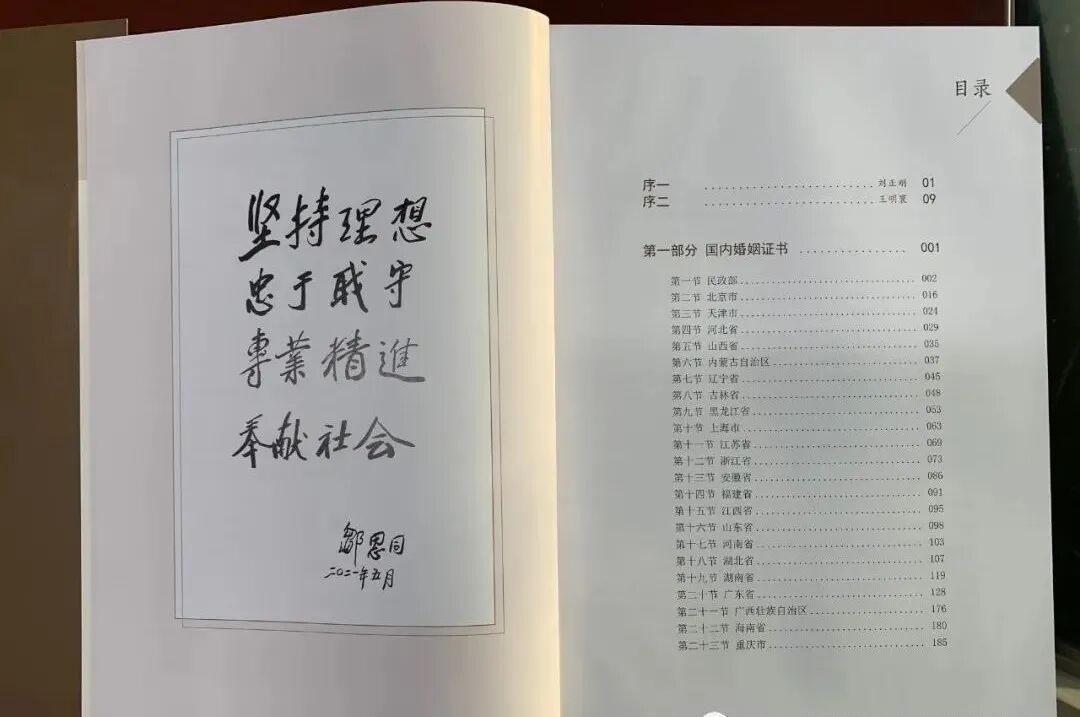 坚持理想
忠于职守
專業精進
奉献社会
邹恩同
二〇二一年五月
目录
序一 ........................ 刘正刚 01
序二 ........................ 王明寰 09
第一部分 国内婚姻证书 ............ 001
第一节 民政部 ........................ 002
第二节 北京市 ........................ 016
第三节 天津市 ........................ 024
第四节 河北省 ........................ 029
第五节 山西省 ........................ 035
第六节 内蒙古自治区 ........................ 037
第七节 辽宁省 ........................ 045
第八节 吉林省 ........................ 048
第九节 黑龙江省 ........................ 053
第十节 上海市 ........................ 063
第十一节 江苏省 ........................ 069
第十二节 浙江省 ........................ 073
第十三节 安徽省 ........................ 086
第十四节 福建省 ........................ 091
第十五节 江西省 ........................ 095
第十六节 山东省 ........................ 098
第十七节 河南省 ........................ 103
第十八节 湖北省 ........................ 107
第十九节 湖南省 ........................ 119
第二十节 广东省 ........................ 128
第二十一节 广西壮族自治区 ........................ 176
第二十二节 海南省 ........................ 180
第二十三节 重庆市 ........................ 185